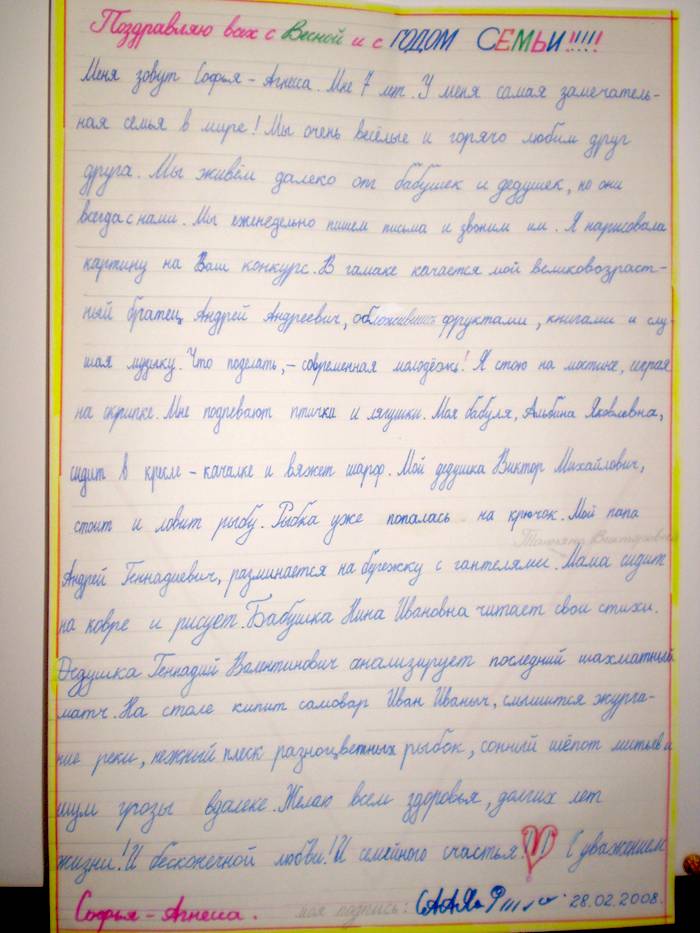 Поздравляю всех с Весной и с ГОДОМ СЕМЬИ!!!!!
Меня зовут Софья-Агнесса. Мне 7 лет. У меня самая замечатель-
ная семья в мире! Мы очень весёлые и горячо любим друг
друга. Мы живём далеко от бабушек и дедушек, но они
всегда с нами. Мы еженедельно пишем письма и звоним им. Я нарисовала
картину на Ваш конкурс. В гамаке качается мой великовозраст-
ный братец Андрей Андреевич, обложившись фруктами, книгами и слу-
шая музыку. Что поделать, - современная молодёжь! Я стою на мостике, играя
на скрипке. Мне подпевают птички и лягушки. Моя бабуля, Альбина Яковлевна,
сидит в кресле-качалке и вяжет шарф. Мой дедушка Виктор Михайлович,
стоит и ловит рыбу. Рыбка уже попалась на крючок. Мой папа
Татьяна Викторовна
Андрей Геннадиевич, разминается на бережку с гантелями. Мама сидит
на ковре и рисует. Бабушка Нина Ивановна читает свои стихи.
Дедушка Геннадий Валентинович анализирует последний шахматный
матч. На столе кипит самовар Иван Иваныч, слышится журча-
ние реки, нежный плеск разноцветных рыбок, сонный шёпот листьев и
шум грозы вдалеке. Желаю всем здоровья, долгих лет
жизни! И бесконечной любви! И семейного счастья! С уважением
Софья-Агнесса. моя подпись: 28.02.2008.